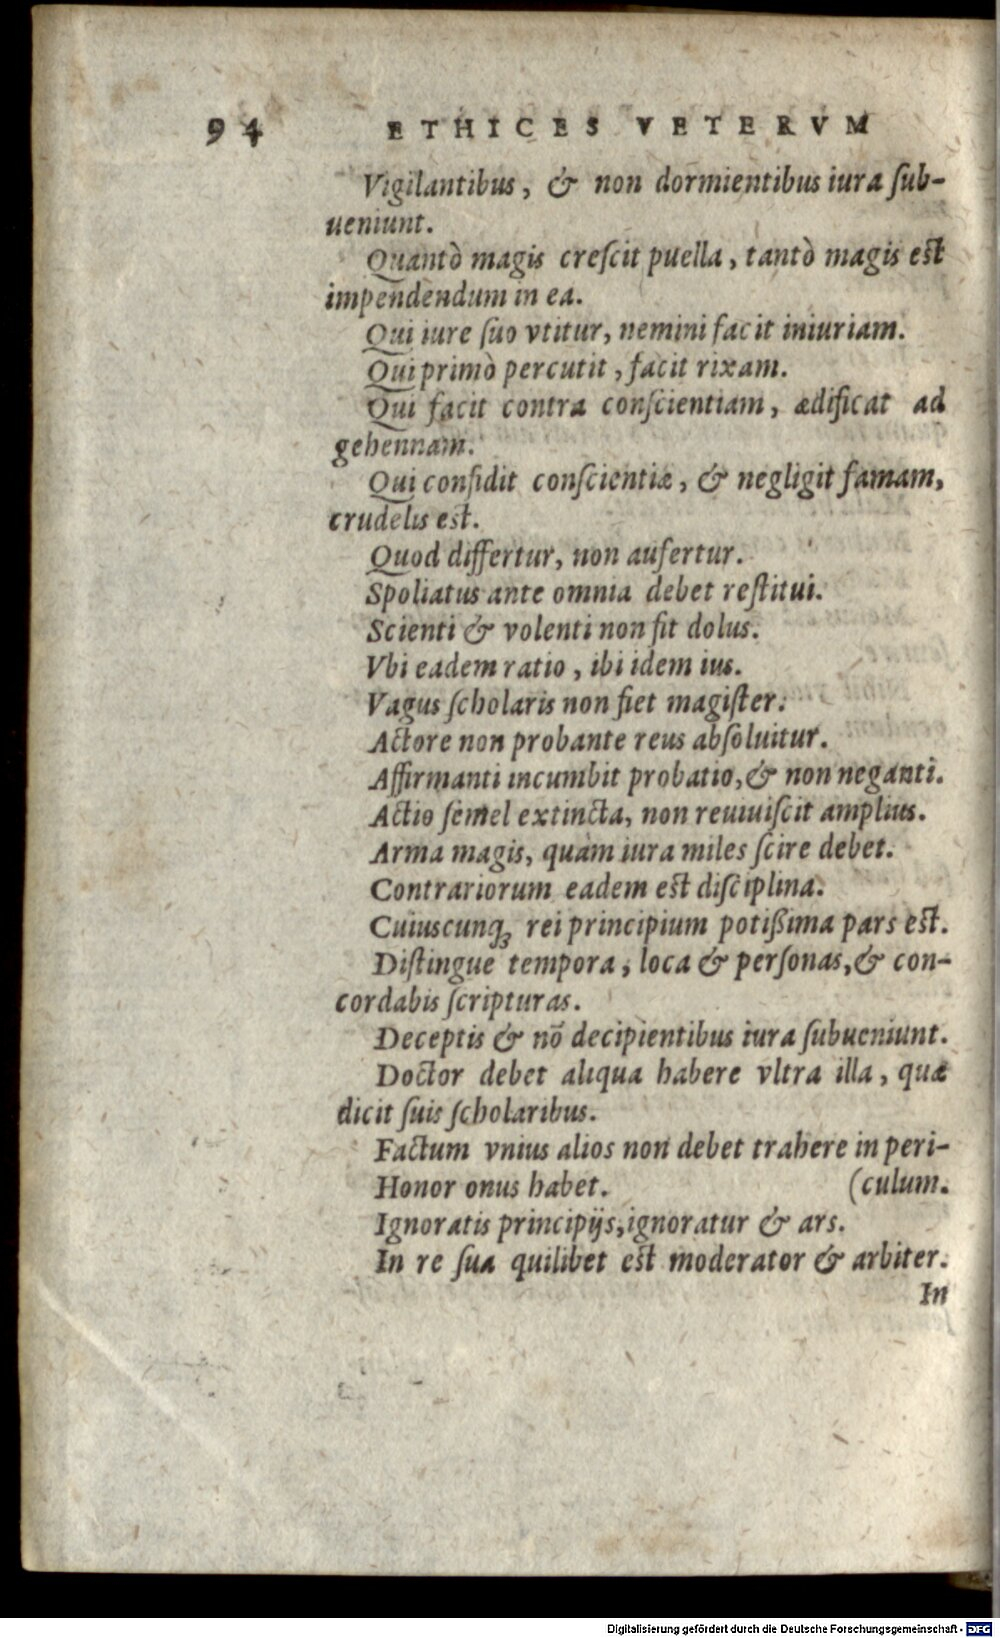 94 ETHICES VETERVM
Vigilantibus, & non dormientibus iura ſub-
ueniunt.
Quantò magis creſcit puella, tantò magis eſt
impendendum in ea.
Qui iure ſuo vtitur, nemini facit iniuriam.
Qui primò percutit, facit rixam.
Qui facit contra conſcientiam, ædificat ad
gehennam.
Qui confidit conſcientiæ, & negligit famam,
crudelis eſt.
Quod differtur, non aufertur.
Spoliatus ante omnia debet reſtitui.
Scienti & volenti non fit dolus.
Vbi eadem ratio, ibi idem ius.
Vagus ſcholaris non fiet magiſter.
Actore non probante reus abſoluitur.
Affirmanti incumbit probatio, & non neganti.
Actio ſemel extincta, non reuiuiſcit amplius.
Arma magis, quàm iura miles ſcire debet.
Contrariorum eadem eſt diſciplina.
Cuiuscunq; rei principium potißima pars eſt.
Diſtingue tempora, loca & perſonas, & con-
cordabis ſcripturas.
Deceptis & nō decipientibus iura ſubueniunt.
Doctor debet aliqua habere vltra illa, quæ
dicit ſuis ſcholaribus.
Factum vnius alios non debet trahere in peri-
Honor onus habet. (culum.
Ignoratis principijs, ignoratur & ars.
In re ſua quilibet eſt moderator & arbiter.
In
Digitalisierung gefördert durch die Deutsche Forschungsgemeinschaft - DFG